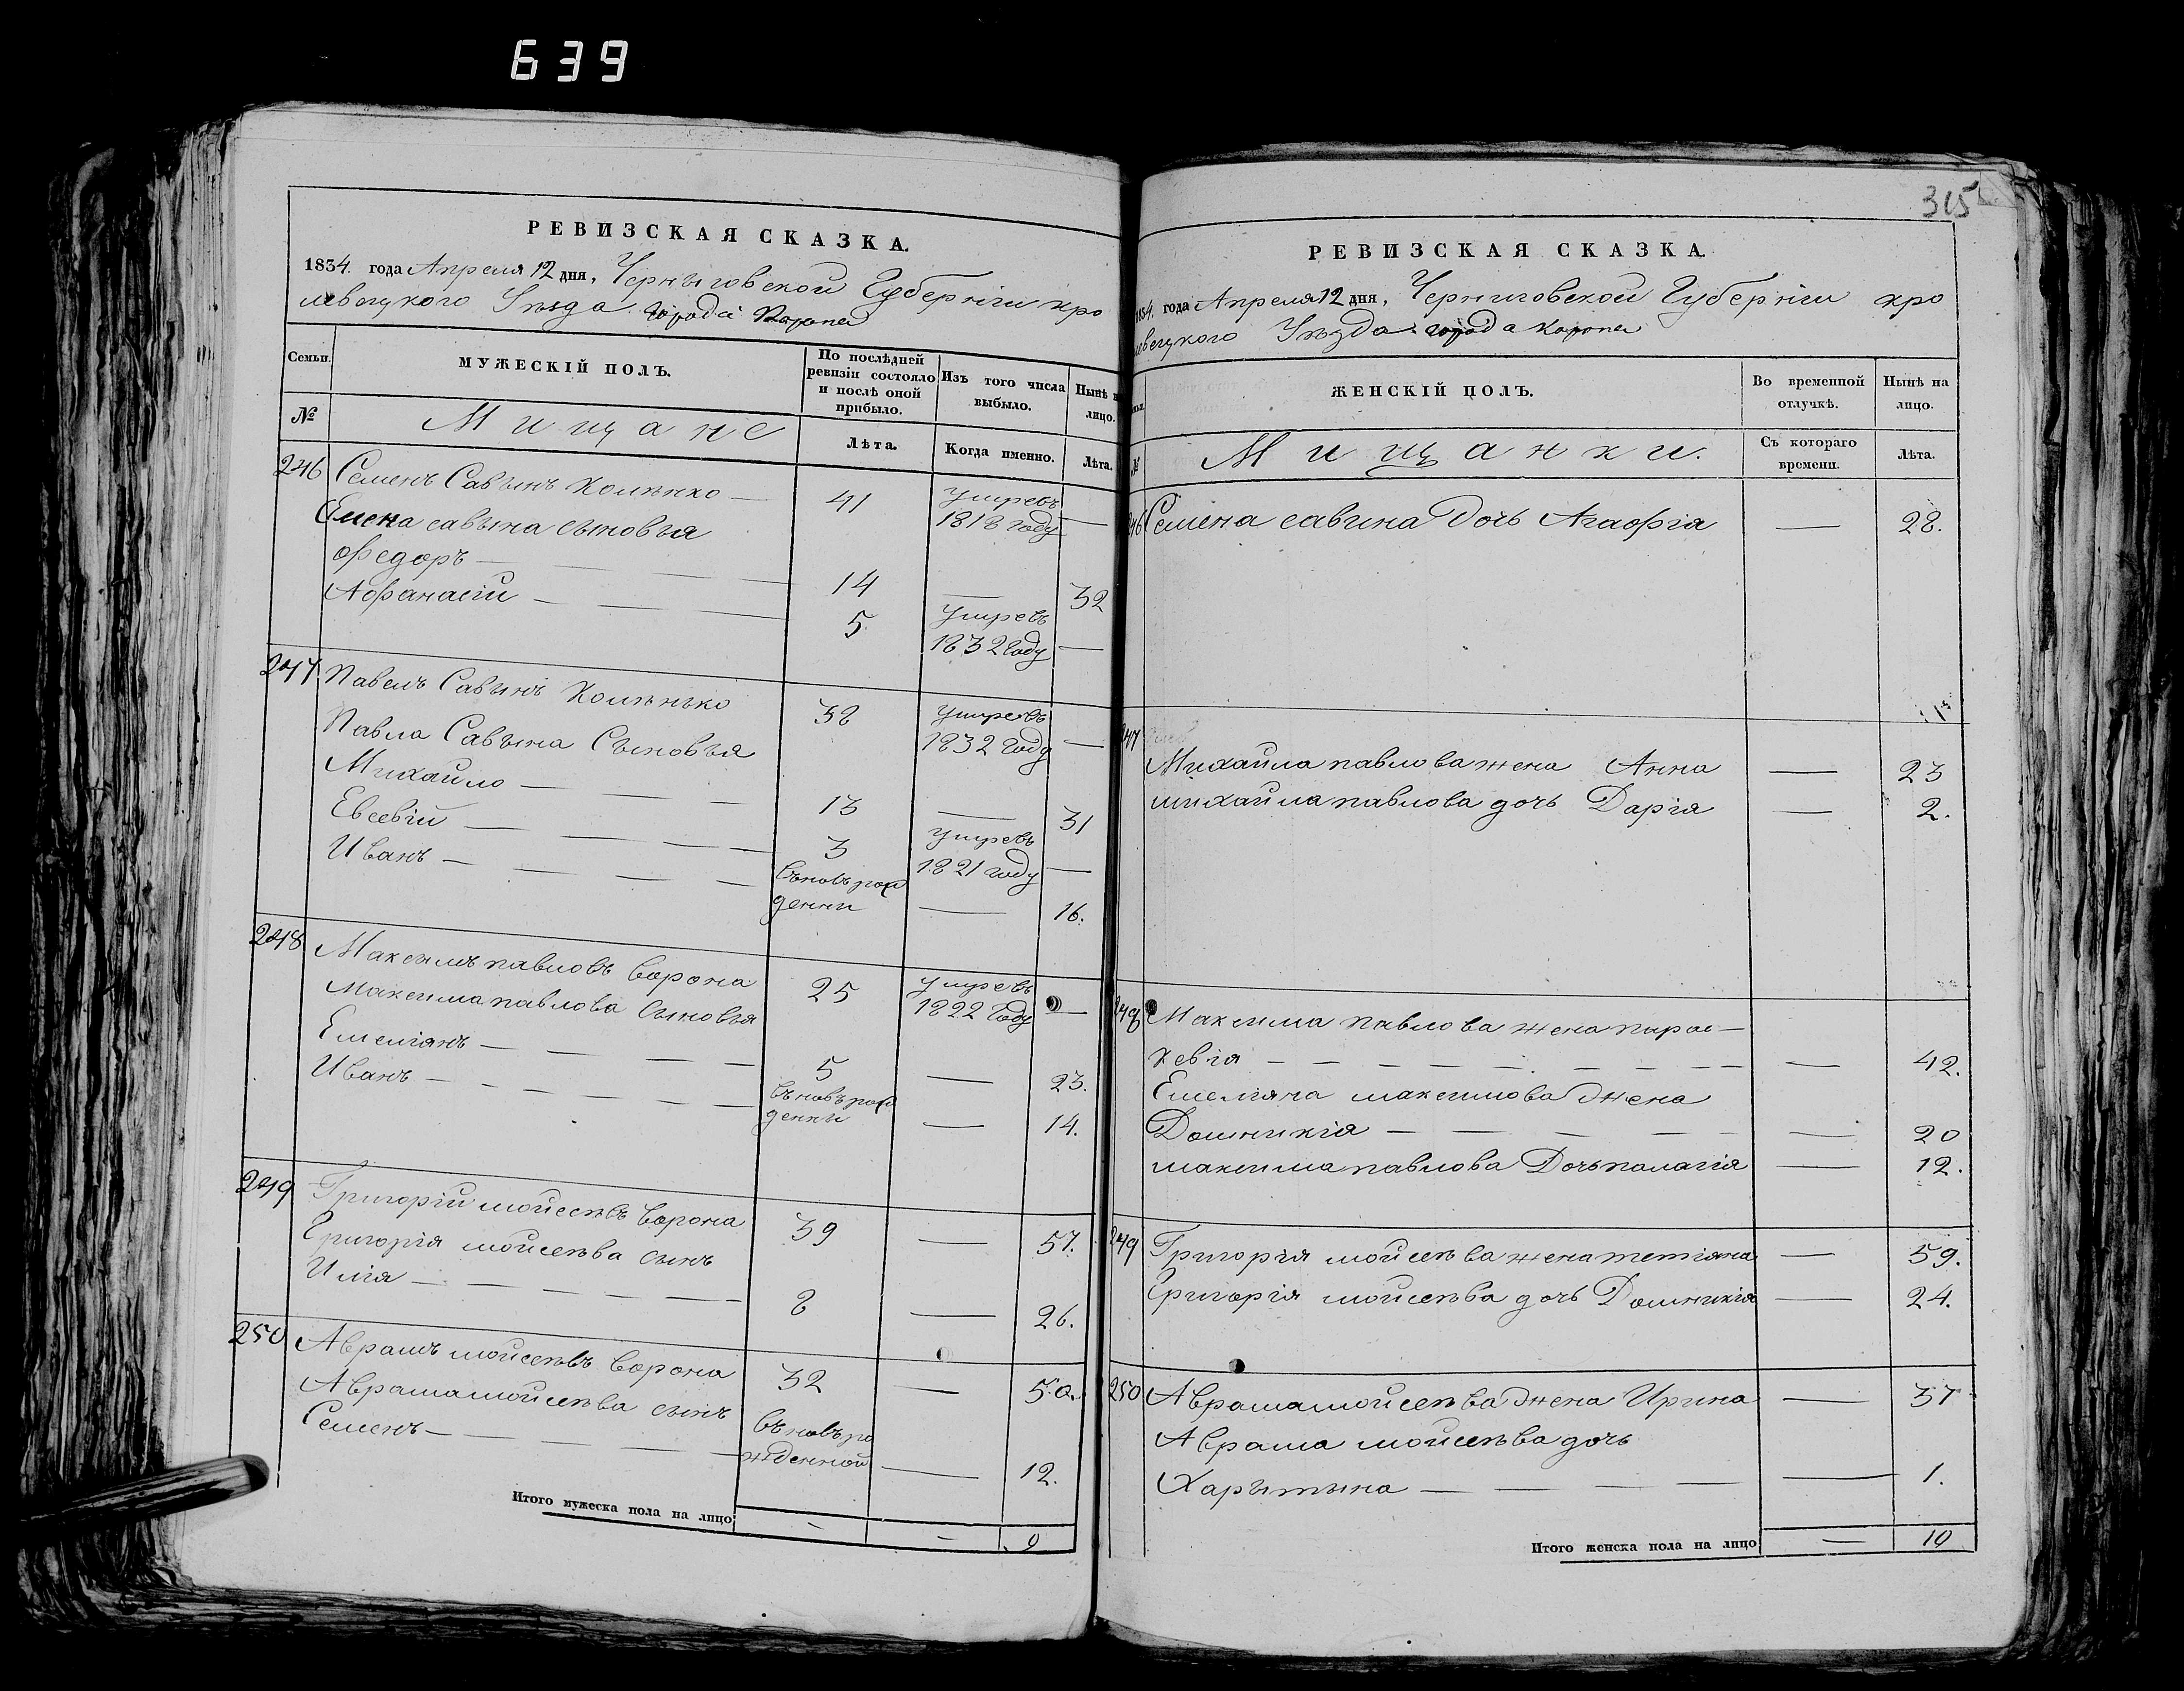 639
РЕВИЗСКАЯ СКАЗКА.
1834. года Апреля 12 дня, Черныговской Губерніи кро
левецкого Уѣзда города Коропа
Семьи.
МУЖЕСКІЙ ПОЛЪ.
По послѣдней ревизіи состояло и послѣ оной прибыло.
Изъ того числа выбыло.
Нынѣ на лицо.
№
Мищане
Лѣта.
Когда именно.
Лѣта.
246 Семенъ Савынъ Колѣнко — 41 умревъ 1818 году —
Семена савына сыновья
Федоръ — 14 — 32
Афанасій — 5. умревъ 1832 году —
247 Павелъ Савынъ Колѣнько 38 умревъ 1832 году —
Павла Савына Сыновья
Михайло — 13 — 31
Евсевій — 3 умревъ 1821 году —
Иванъ — вновь рож
денни — 16.
248 Максымъ павловъ Ворона 25 умревъ 1822 году —
Максима павлова Сыновья
Емеліянъ — 5 — 23.
Иванъ — вновь рож
денны — 14.
249 Григорій мойсеѣвъ Ворона 39 — 57.
Григорія мойсеѣва сынъ
Илія — 8 — 26.
250 Аврамъ мойсеѣвъ Ворона 32 — 50.
Аврама мойсеѣва сынъ
Семенъ — вновь ро
жденной — 12.
Итого мужеска пола на лицо — — 9
315
РЕВИЗСКАЯ СКАЗКА.
1834. года Апреля 12 дня, Черниговской Губерніи кро
левецкого Уѣзда города Коропа
ЖЕНСКІЙ ПОЛЪ.
Во временной отлучкѣ.
Нынѣ на лицо.
№
Мищанки.
Съ котораго времени.
Лѣта.
246 Семена савина дочь Агафія — 28.
247
Михайла павлова жена Анна — 23
михайла павлова дочь Дарія — 2.
248 Максима павлова жена парас—
кевія — 42.
Емеліяна максимова жена
Домникія — 20
максима павлова Дочь палагія — 12.
249 Григорія мойсеѣва жена тетіяна — 59.
Григорія мойсеѣва дочь Домникія — 24.
250 Аврама мойсеѣва жена Ирина — 37
Аврама мойсеѣва дочь
Харытына — 1.
Итого женска пола на лицо — 10